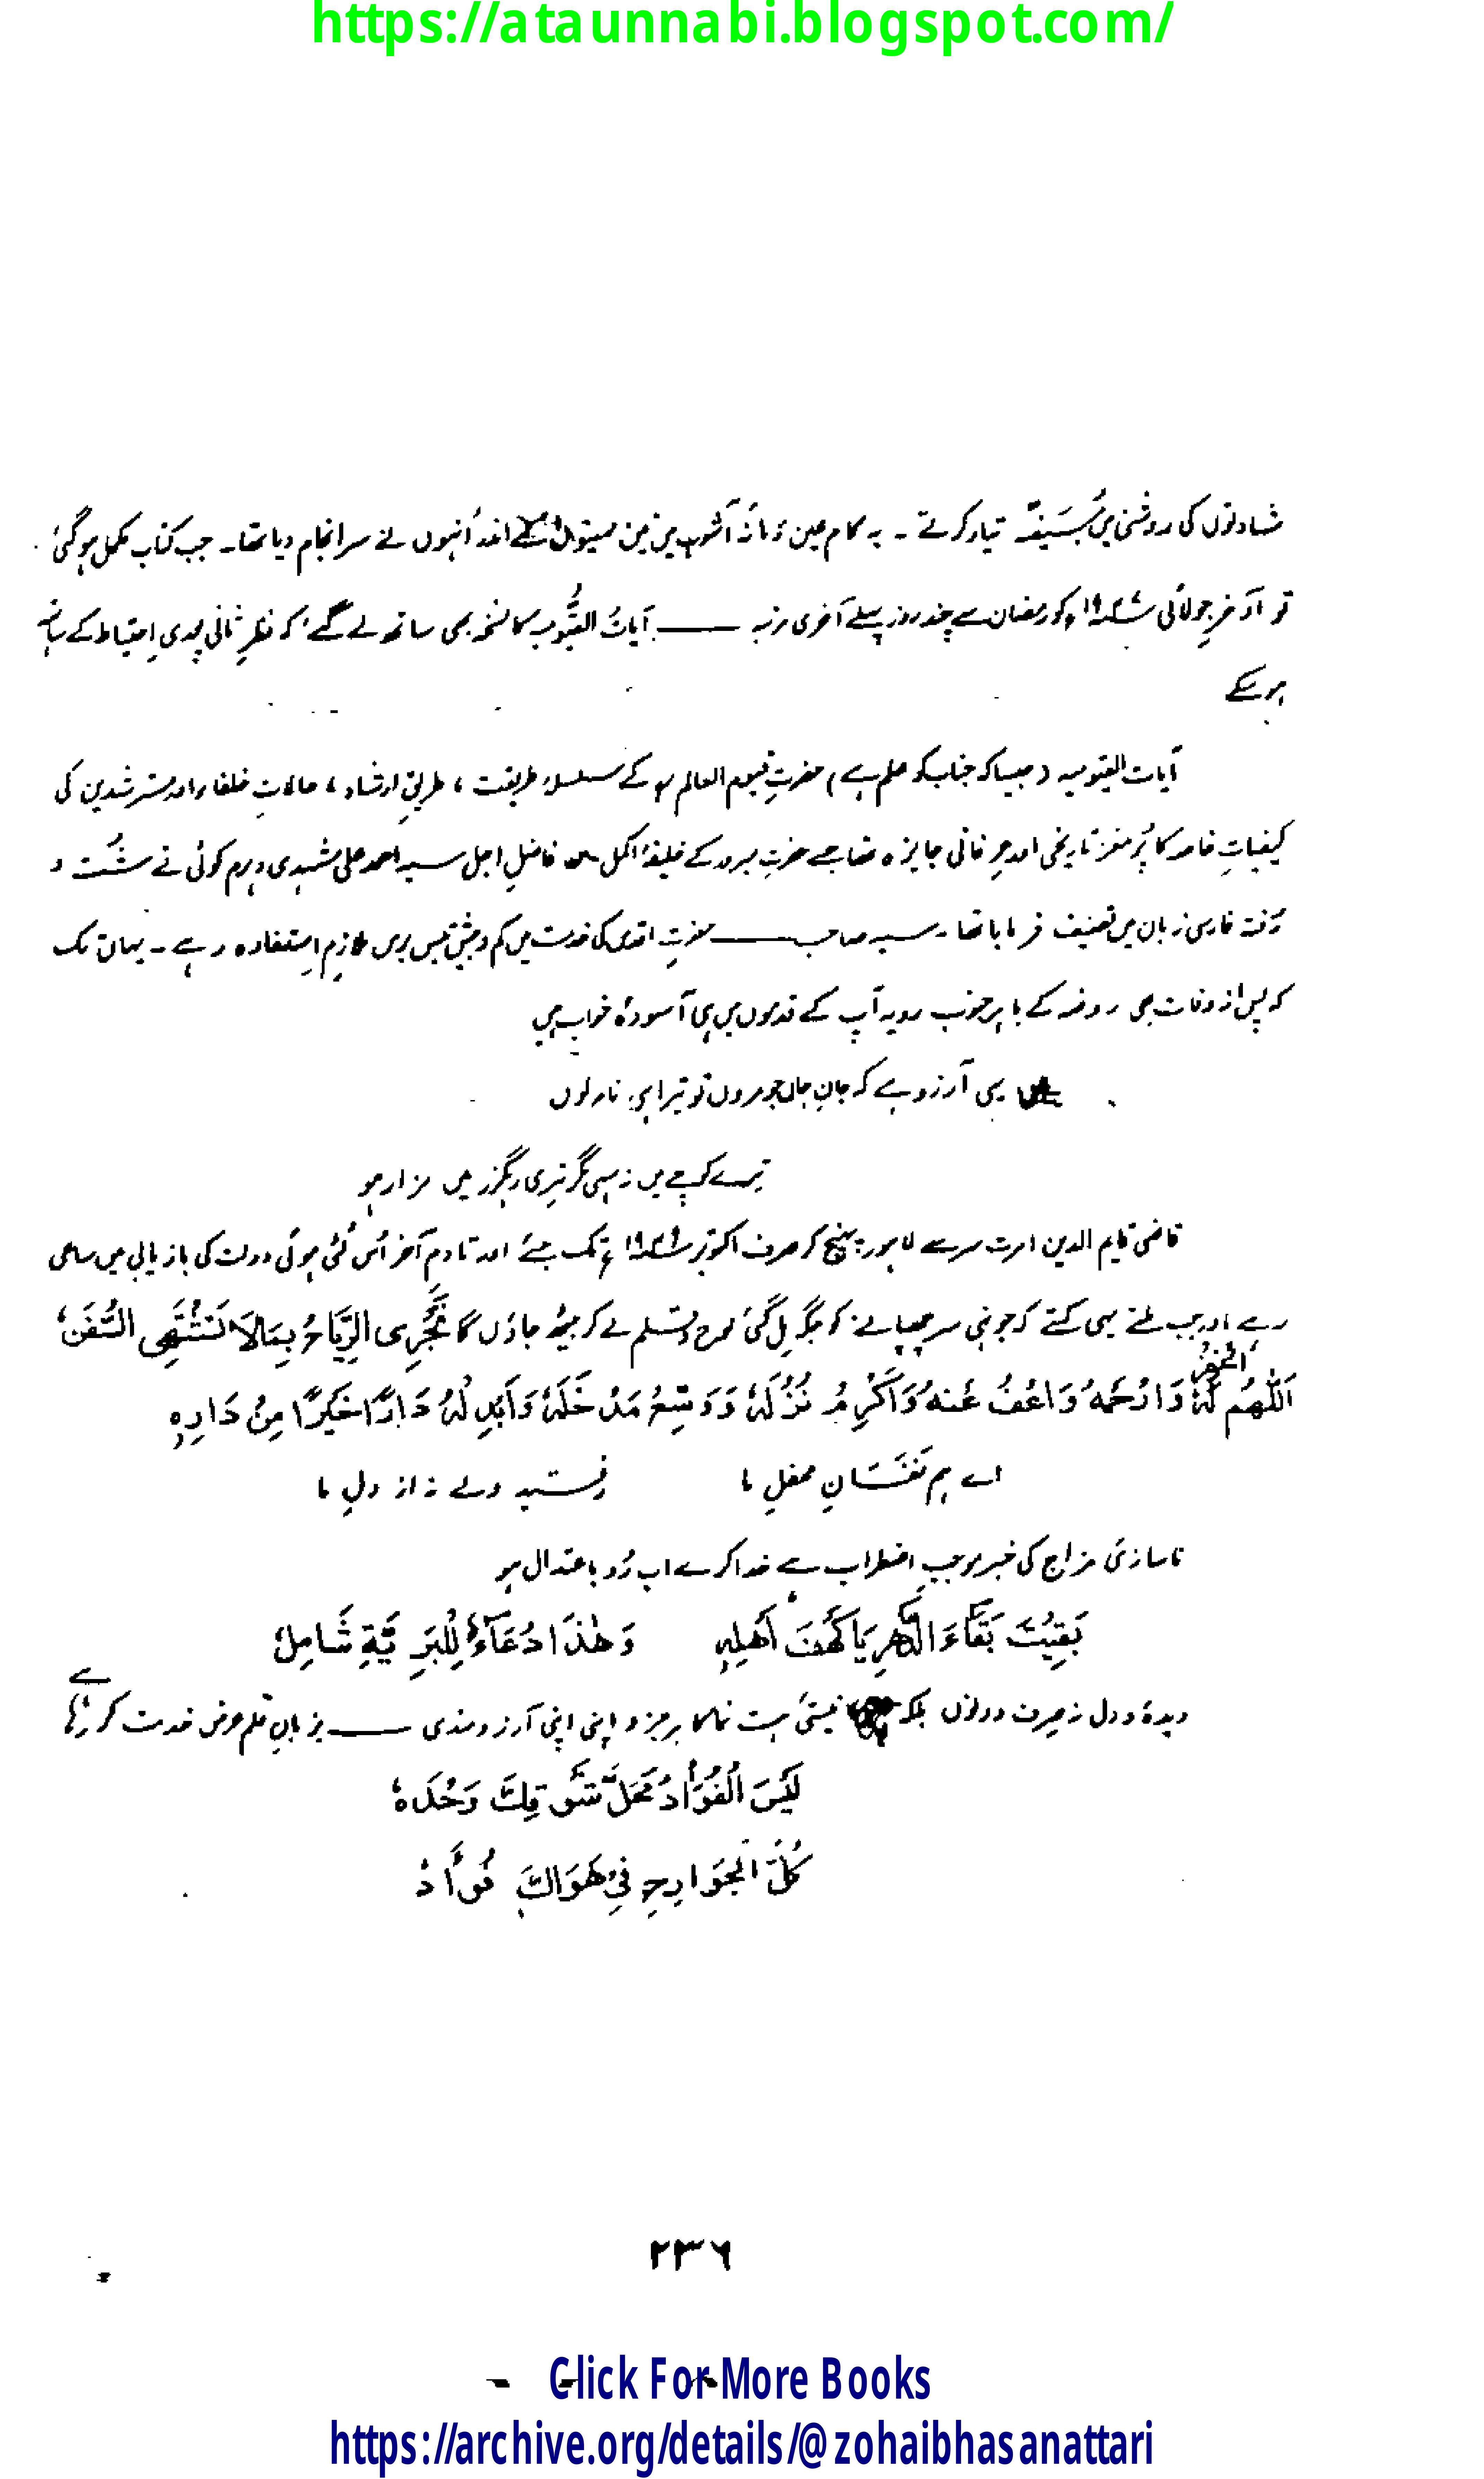 https://ataunnabi.blogspot.com/
شہادتوں کی روشنی میں تیار کرتے ۔ یہ کام عین زمانۂ آشوب میں تین مہینوں کے اندر اُنہوں نے سرانجام دیا تھا۔ جب کتاب مکمل ہو گئی
تو اواخرِ جولائی ۱۹۴۷ء کو رمضان سے چند روز پہلے آخری مرتبہ —— آیاتُ القیّومیہ کا نسخہ بھی ساتھ لے گئے کہ نظرِ ثانی پوری احتیاط کے ساتھ
ہو سکے
آیات القیومیہ (جیسا کہ جناب کو علم ہے) حضرتِ قیوم العالم کے سلسلۂ طریقت ، طریقِ ارشاد ، حالاتِ خلفاء اور مسترشدین کی
کیفیاتِ خاصہ کا پُرمغز تاریخی اور عرفانی جایزہ تھا جسے حضرتِ کے خلیفۂ اکمل فاضلِ اجل سید احمد علی مشہدی نے شُستہ و
رُفتہ فارسی زبان میں تصنیف فرمایا تھا۔ سید صاحب —— حضرتِ اقدس کی خدمت میں کم و بیش تیس برس ملازمِ استفادہ رہے ۔ یہاں تک
کہ پس از وفات بھی روضہ کے باہر جنوب رویہ آپ کے قدموں میں ہی آسودۂ خواب ہیں
یہی آرزو ہے کہ جانِ جاں جو مروں تو تیرا ہی نام لوں
تیرے کوچے میں نہ سہی مگر تیری رہگزر میں مزار ہو
قاضی قایم الدین امرت سر سے لاہور پہنچ کر صرف اکتوبر ۱۹۴۸ء تک جئے اور تا دمِ آخر اُس لُٹی ہوئی دولت کی بازیابی میں ساعی
رہے اور جب ملتے یہی کہتے کہ جونہی سر چھپانے کو جگہ مل گئی لوح و قلم لے کر بیٹھ جاؤں گا تَجْرِی الرِّیَاحُ بِمَالَا تَشْتَهِی السُّفُنُ
اَللّٰهُمَّ اغْفِرْ لَهٗ وَارْحَمْهُ وَاعْفُ عَنْهُ وَاَكْرِمْ نُزُلَهٗ وَوَسِّعْ مَدْخَلَهٗ وَاَبْدِلْ لَهٗ دَارًا خَيْرًا مِنْ دَارِهٖ
اے ہم نَفَسَانِ محفلِ ما رفتید ولے نہ از دلِ ما
ناسازئ مزاج کی خبر موجبِ اضطراب ہے خدا کرے اب رُو باعتدال ہو
بَقِيْتَ بَقَاءَ الدَّهْرِ يَا كَهْفَ اَهْلِهٖ وَهٰذَا دُعَاءٌ لِلْبَرِيَّةِ شَامِلٗ
دیدۂ و دل نہ صرف دونوں بلکہ نیستئ ہست نما کا ہر جزو اپنی اپنی آرزومندی —— بزبانِ قلم عرض خدمت کر رہا ہے
لَيْسَ الْفُؤَادُ مَحَلَّ شَوْقِكَ وَحْدَهٗ
كُلُّ الْجَوَارِحِ فِيْ هَوَاكَ فُؤَادٗ
۲۳۶
Click For More Books
https://archive.org/details/@zohaibhasanattari